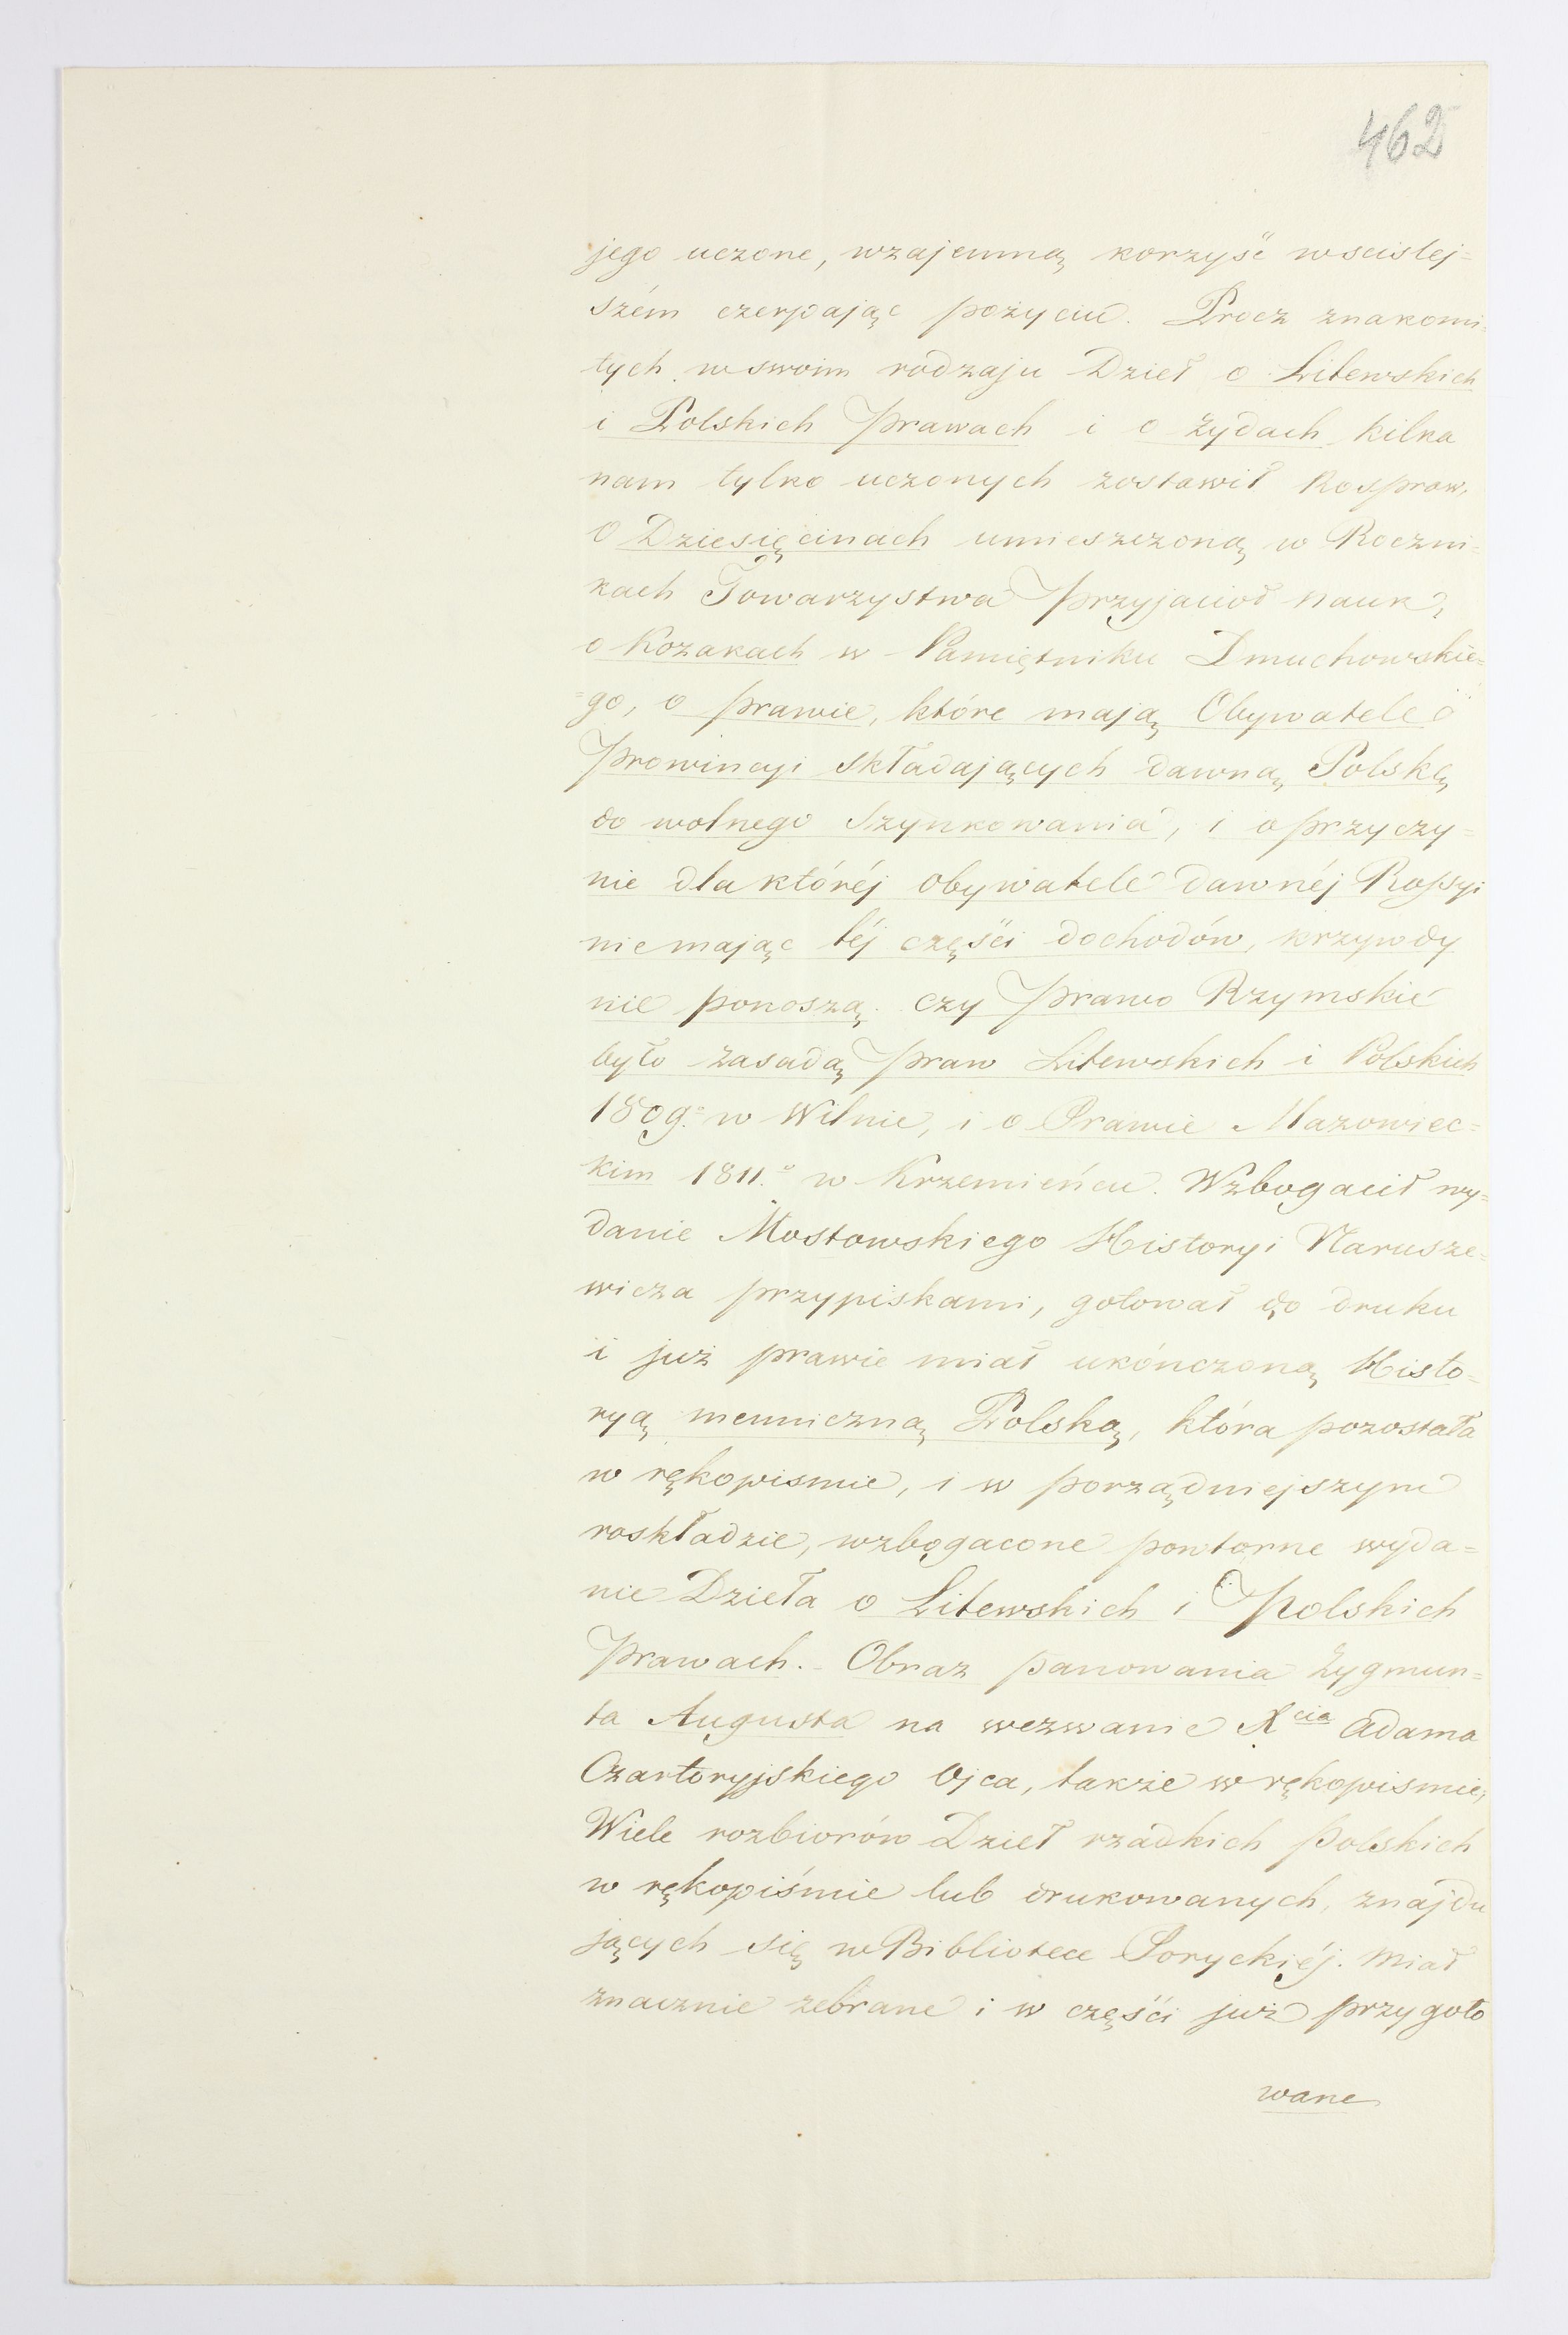 462
jego uczone, wzajemną korzyść wscislej=
szém czerpając pożyciu. Procz znakomi=
tych w swoim rodzaju Dzieł o Litewskich
i Polskich Prawach i o Żydach kilka
nam tylko uczonych zostawił Rospraw,
O Dziesięcinach umieszczoną w Roczni=
kach Towarzystwa Przyjaciół nauk,
o Kozakach w Pamiętniku Dmuchowskie=
=go, o prawie, które mają Obywatele
Prowincyi składających dawną Polskę
do wolnego Szynkowania, i o przyczy=
nie dla któréj obywatele dawnéj Rossyi
niemając téj części dochodów, krzywdy
nie ponoszą. czy Prawo Rzymskie
było zasadą Praw Litewskich i Polskich
1809.º w Wilnie, i o Prawie Mazowiec=
kim 1811.º w Krzemieńcu. Wzbogacił wy=
danie Mostowskiego Historyi Narusze=
wicza przypiskami, gotował do druku
i już prawie miał ukónczoną Histo=
ryą menniczną Polską, która pozostała
w rękopismie, i w porządniejszym
roskładzie, wzbogacone powtorne wyda=
nie Dzieła o Litewskich i Polskich
Prawach. Obraz panowania Zygmun=
ta Augusta na wezwanie Xcia Adama
Czartoryjskiego Ojca, także w rękopismie,
Wiele rozbiorów Dzieł rzadkich Polskich
w rękopiśmie lub drukowanych, znajdu
jących się w Bibliotece Poryckiéj. Miał
znacznie zebrane i w części już przygoto
wane